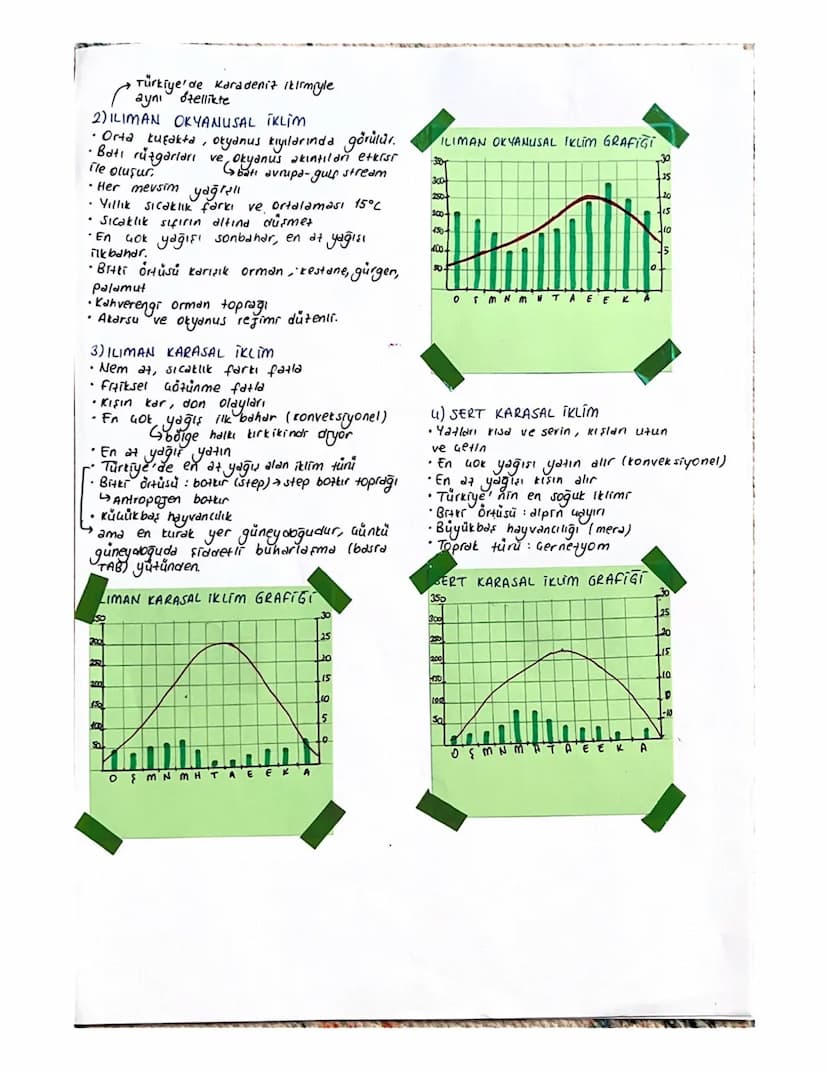 Türkiye'de Karadeniz iklimiyle
aynı özellikte
2) ILIMAN OKYANUSAL İKLİM
• Orta kuşakta, okyanus kıyılarında görülür.
• Batı rüzgarları ve okyanus akıntıları etkisi
ile oluşur. ↳batı avrupa-gulf stream
• Her mevsim yağışlı
• Yıllık sıcaklık farkı ve ortalaması 15°C
• Sıcaklık sıfırın altına düşmez
• En çok yağışı sonbahar, en az yağışı
ilkbahar.
• Bitki örtüsü karışık orman, kestane, gürgen,
palamut
• Kahverengi orman toprağı
• Akarsu ve okyanus rejimi düzenli.
3) ILIMAN KARASAL İKLİM
• Nem az, sıcaklık farkı fazla
• Fiziksel çözünme fazla
• Kışın kar, don olayları
• En çok yağış ilk bahar (konveksiyonel)
↳bölge halkı kırkikindi diyor
• En az yağış yazın
• Türkiye'de en az yağış alan iklim türü
• Bitki örtüsü : bozkır (step) → step bozkır toprağı
↳ Antropojen bozkır
• Küçükbaş hayvancılık
→ ama en kurak yer güneydoğudur, çünkü
güneydoğuda şiddetli buharlaşma (basra
TAB) yüzünden.
ILIMAN OKYANUSAL İKLİM GRAFİĞİ
350
300
250
200
150
100
50
30
25
20
15
10
5
0
O Ş M N M H T A E E K A
4) SERT KARASAL İKLİM
• Yazları kısa ve serin, kışları uzun
ve çetin
• En çok yağışı yazın alır (konveksiyonel)
• En az yağışı kışın alır
• Türkiye'nin en soğuk iklimi
• Bitki örtüsü : alpin çayırı
• Büyükbaş hayvancılığı (mera)
• Toprak türü : Çernezyom
ILIMAN KARASAL İKLİM GRAFİĞİ
350
300
250
200
150
100
50
30
25
20
15
10
5
0
O Ş M N M H T A E E K A
SERT KARASAL İKLİM GRAFİĞİ
350
300
250
200
150
100
50
30
25
20
15
10
0
-10
O Ş M N M H T A E E K A